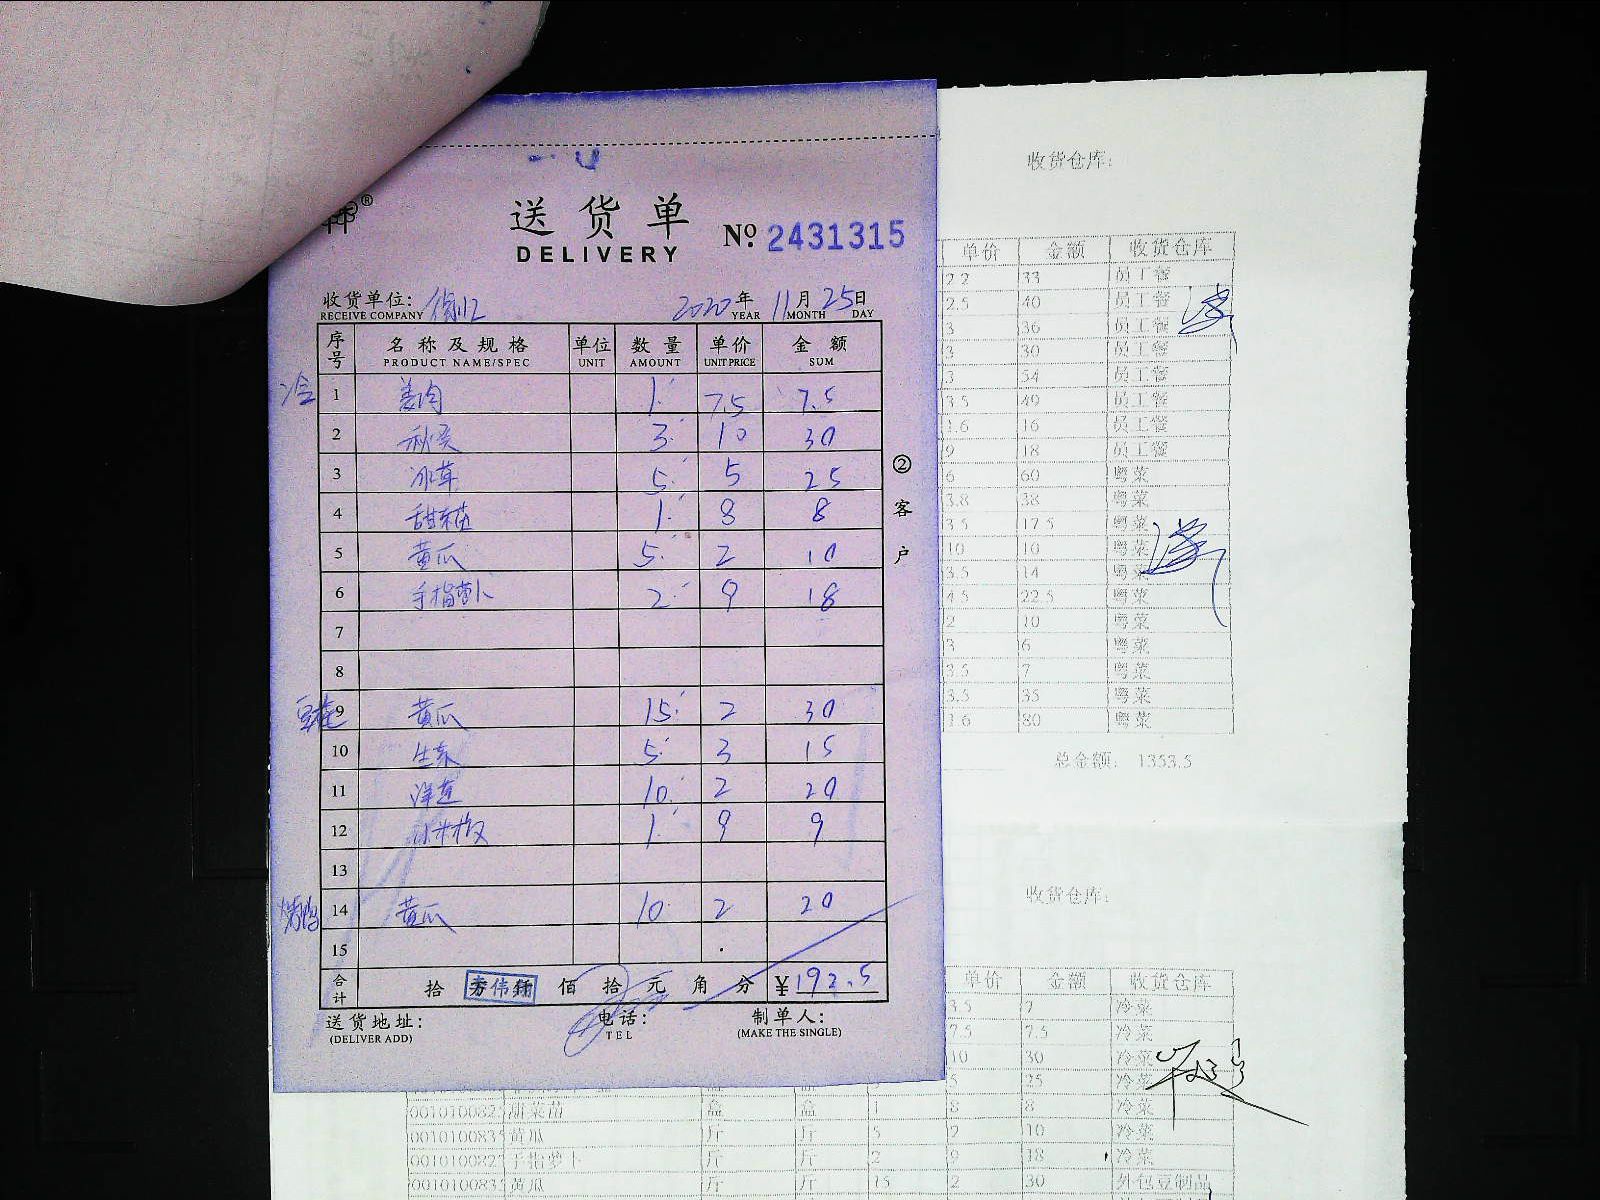 送货单
DELIVERY
№ 2431315
收货单位:
RECEIVE COMPANY
2020年 11月 25日
YEAR MONTH DAY
序号 名称及规格 单位 数量 单价 金额
PRODUCT NAME/SPEC UNIT AMOUNT UNIT PRICE SUM
冷 1 姜肉 1 7.5 7.5
2 秋葵 3 10 30
3 冰草 5 5 25
4 甜菜苗 1 8 8
5 黄瓜 5 2 10
6 手指萝卜 2 9 18
7
8
9 黄瓜 15 2 30
10 生菜 5 3 15
11 洋葱 10 2 20
12 小米椒 1 9 9
13
烤鸭 14 黄瓜 10 2 20
15
合计 拾 佰 拾 元 角 分 ¥192.5
送货地址: 电话: 制单人:
(DELIVER ADD) TEL (MAKE THE SINGLE)
②客户
收货仓库:
单价 金额 收货仓库
22 33 员工餐
2.5 40 员工餐
3 36 员工餐
3 30 员工餐
3 54 员工餐
3.5 49 员工餐
1.6 16 员工餐
9 18 员工餐
6 60 粤菜
3.8 38 粤菜
3.5 17.5 粤菜
10 10 粤菜
3.5 14 粤菜
4.5 22.5 粤菜
2 10 粤菜
3 6 粤菜
3.5 7 粤菜
3.5 35 粤菜
1.6 80 粤菜
总金额: 1353.5
收货仓库:
单价 金额 收货仓库
3.5 7 冷菜
7.5 7.5 冷菜
10 30 冷菜
5 25 冷菜
甜菜苗 盒 盒 1 8 8 冷菜
黄瓜 斤 斤 5 2 10 冷菜
手指萝卜 斤 斤 2 9 18 冷菜
黄瓜 斤 斤 15 2 30 外包豆制品